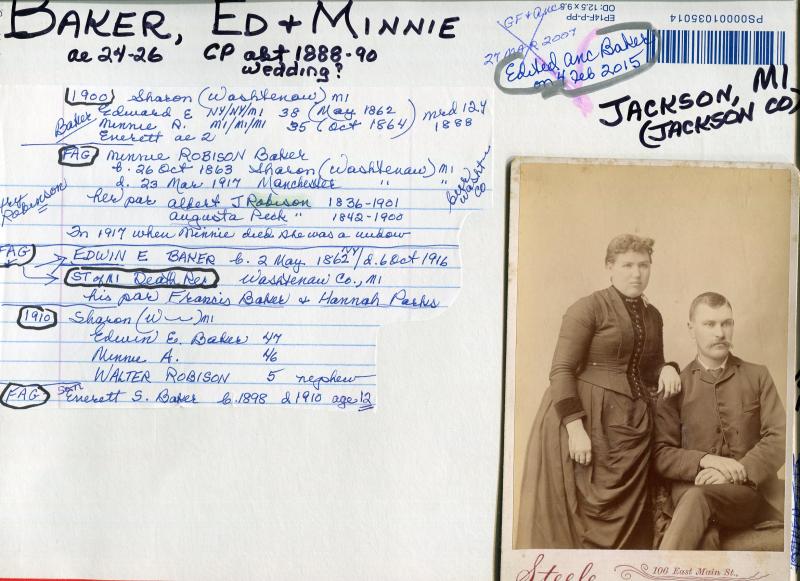 BAKER, ED + MINNIE
ae 24-26 CP abt 1888-90
wedding?
GF + anc
27 MAR 2007
Edited anc Baker
on 4 Feb 2015
EP14F-P-PP
OD: 12.5 x 9.8
PS00001035014
JACKSON, MI
(JACKSON CO)
1900 Sharon (Washtenaw) MI
Baker Edward E NY/NY/MI 38 (May 1862) mrd 12y
Minnie A. MI/MI/MI 35 (Oct 1864) 1888
Everett ae 2
FAG Minnie ROBISON Baker
b. 26 Oct 1863 Sharon (Washtenaw) MI
d. 23 Mar 1917 Manchester " "
her par Albert J Robison 1836-1901
Augusta Peck " 1842-1900
Robinson
Washt
CO
In 1917 when Minnie died she was a widow
FAG EDWIN E BAKER b. 2 May 1862 NY/d. 6 Oct 1916
ST of MI Death Rec Washtenaw Co., MI
his par Francis Baker & Hannah Parks
1910 Sharon (W~) MI
Edwin E. Baker 47
Minnie A. 46
WALTER ROBISON 5 nephew
FAG son Everett S. Baker b. 1898 d 1910 age 12
Steele
106 East Main St.,